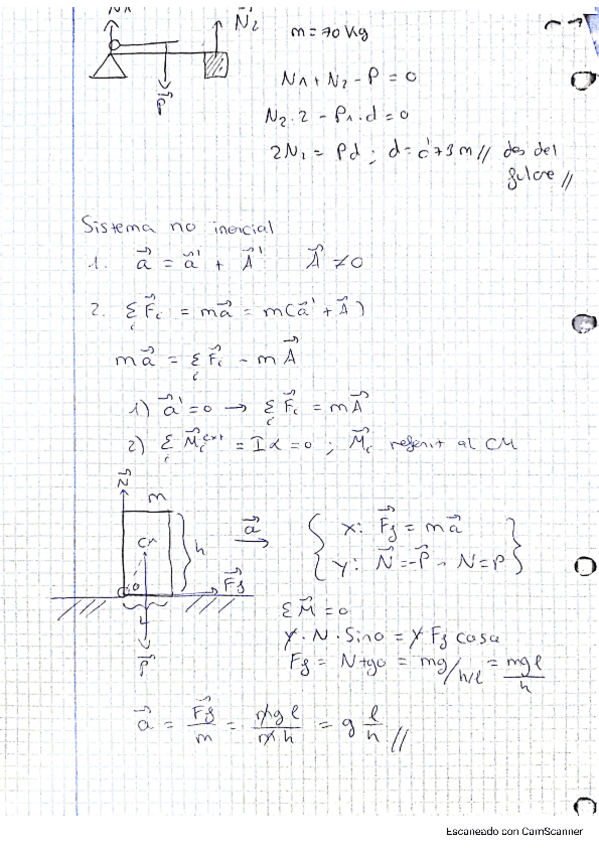 N₁ N⃗₂ m = 70 Kg
N₁ + N₂ - P = 0
P⃗
N₂ · 2 - P₁ · d = 0
2N₂ = Pd ; d = 0'73 m // des del
fulcre //
Sistema no inercial
1. a⃗ = a⃗' + A⃗' A⃗ ≠ 0
2. Σ F⃗ᵢ = ma⃗ = m(a⃗' + A⃗)
ma⃗ = Σ F⃗ᵢ - mA⃗
1) a⃗' = 0 → Σ F⃗ᵢ = mA⃗
2) Σ M⃗ᵢᵉˣᵗ = Iα = 0 ; M⃗ᵢ referit al CM
N⃗ m
CM h a⃗ x: F⃗f = ma⃗
θ F⃗f y: N⃗ = -P⃗ → N = P
L ΣM⃗ = 0
r · N · Sinθ = r Ff cosα
P⃗ Ff = N tgθ = mg/h/l = mgl/h
a⃗ = F⃗f/m = mgl/mh = g l/h //
Escaneado con CamScanner